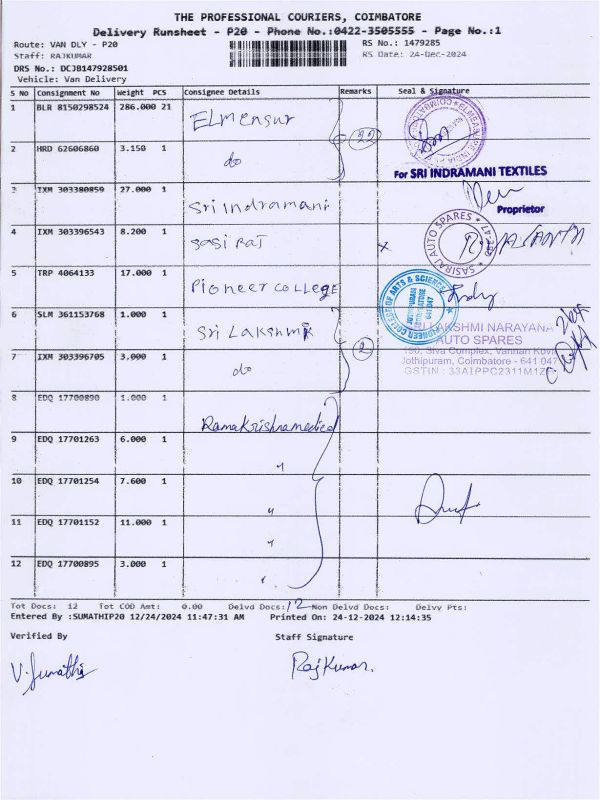 THE PROFESSIONAL COURIERS, COIMBATORE
Delivery Runsheet - P20 - Phone No.:0422-3505555 - Page No.:1
Route: VAN DLY - P20 RS No.: 1479285
Staff: RAJKUMAR RS Date: 24-Dec-2024
DRS No.: DCJB147928501
Vehicle: Van Delivery
S No Consignment No Weight PCS Consignee Details Remarks Seal & Signature
1 BLR 8150298524 286.000 21 ELMensur
22
2 HRD 62606860 3.150 1 do
For SRI INDRAMANI TEXTILES
Proprietor
3 IXM 303380859 27.000 1 Sri Indramani
4 IXM 303396543 8.200 1 Sasi Raj
SASIRAJ AUTO SPARES
5 TRP 4064133 17.000 1 Pioneer College
PIONEER COLLEGE OF ARTS & SCIENCE
6 SLM 361153768 1.000 1 Sri Lakshmi
LAKSHMI NARAYANA
AUTO SPARES
2
7 IXM 303396705 3.000 1 do
Siva Complex, Vannan Kovil
Jothipuram, Coimbatore - 641 047
GSTIN : 33AIPPC2311M1Z
8 EDQ 17700890 1.000 1 Ramakrishnamedical
9 EDQ 17701263 6.000 1 "
10 EDQ 17701254 7.600 1 "
11 EDQ 17701152 11.000 1 "
12 EDQ 17700895 3.000 1
Tot Docs: 12 Tot COD Amt: 0.00 Delvd Docs: 12 Non Delvd Docs: Delvy Pts:
Entered By :SUMATHIP20 12/24/2024 11:47:31 AM Printed On: 24-12-2024 12:14:35
Verified By Staff Signature
V. Sumathi RajKumar.